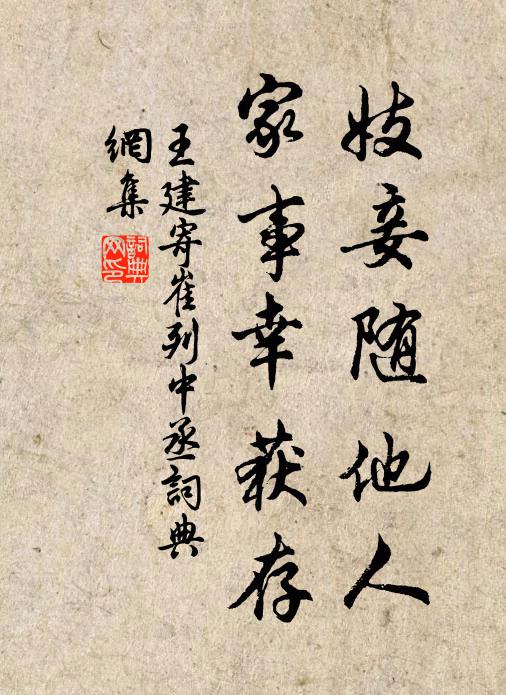 妓妾随他人
家事幸获存
王建寄崔列中丞詞典
網集
詞典
网印